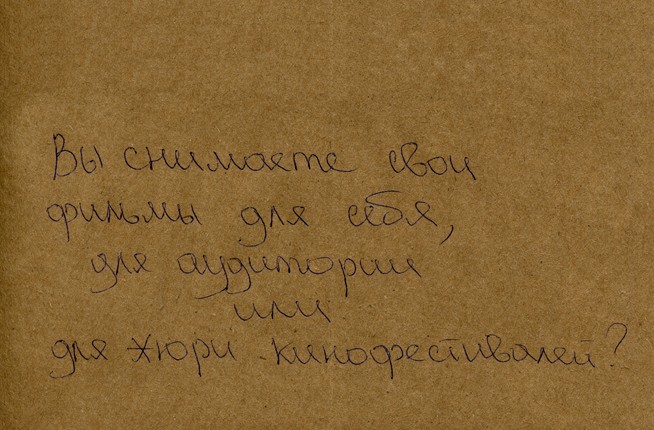 Вы снимаете свои
фильмы для себя,
для аудитории
или
для жюри кинофестивалей?